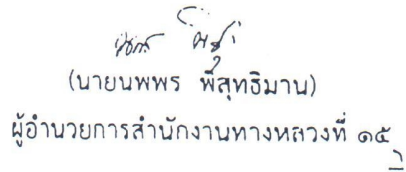 (นายนพพร พิสุทธิมาน)
ผู้อำนวยการสำนักงานทางหลวงที่ ๑๕